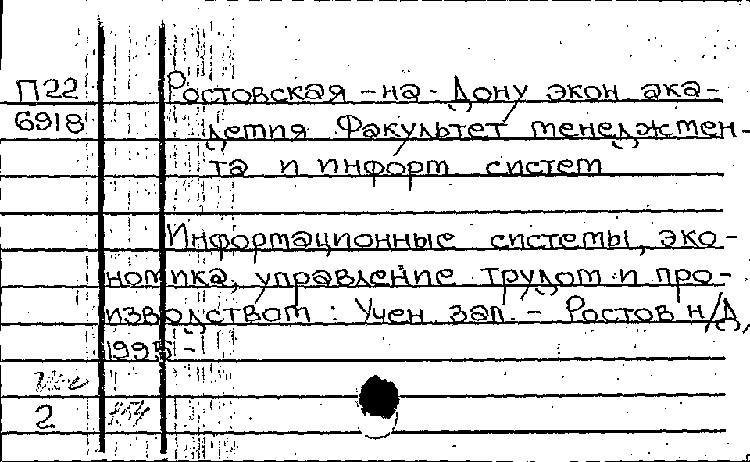 П22 Ростовская-на-Дону экон ака-
6918 демия Факультет менеджмен-
та и информ систем
Информационные системы, эко-
номика, управление трудом и про-
изводством : Учен зап. - Ростов н/Д,
1995 -
2